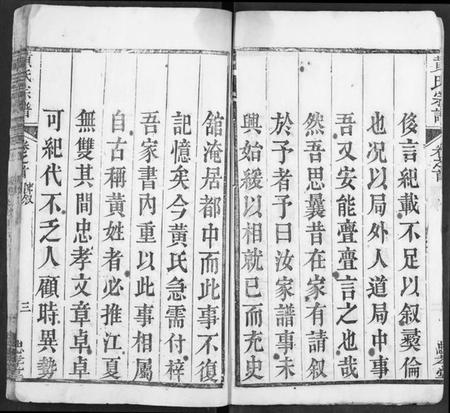 黃氏宗譜
卷之首
侈言紀載不足以叙彝倫
也况以局外人道局中事
吾又安能亹亹言之也哉
然吾思曩昔在家有請叙
於予者予曰汝家譜事未
興始緩以相就已而充史
舘淹居都中而此事不復
記憶矣今黃氏急需付梓
吾家書內重以此事相屬
自古稱黃姓者必推江夏
無雙其間忠孝文章卓卓
可紀代不乏人顧時異勢
黃氏宗譜
卷之首
三